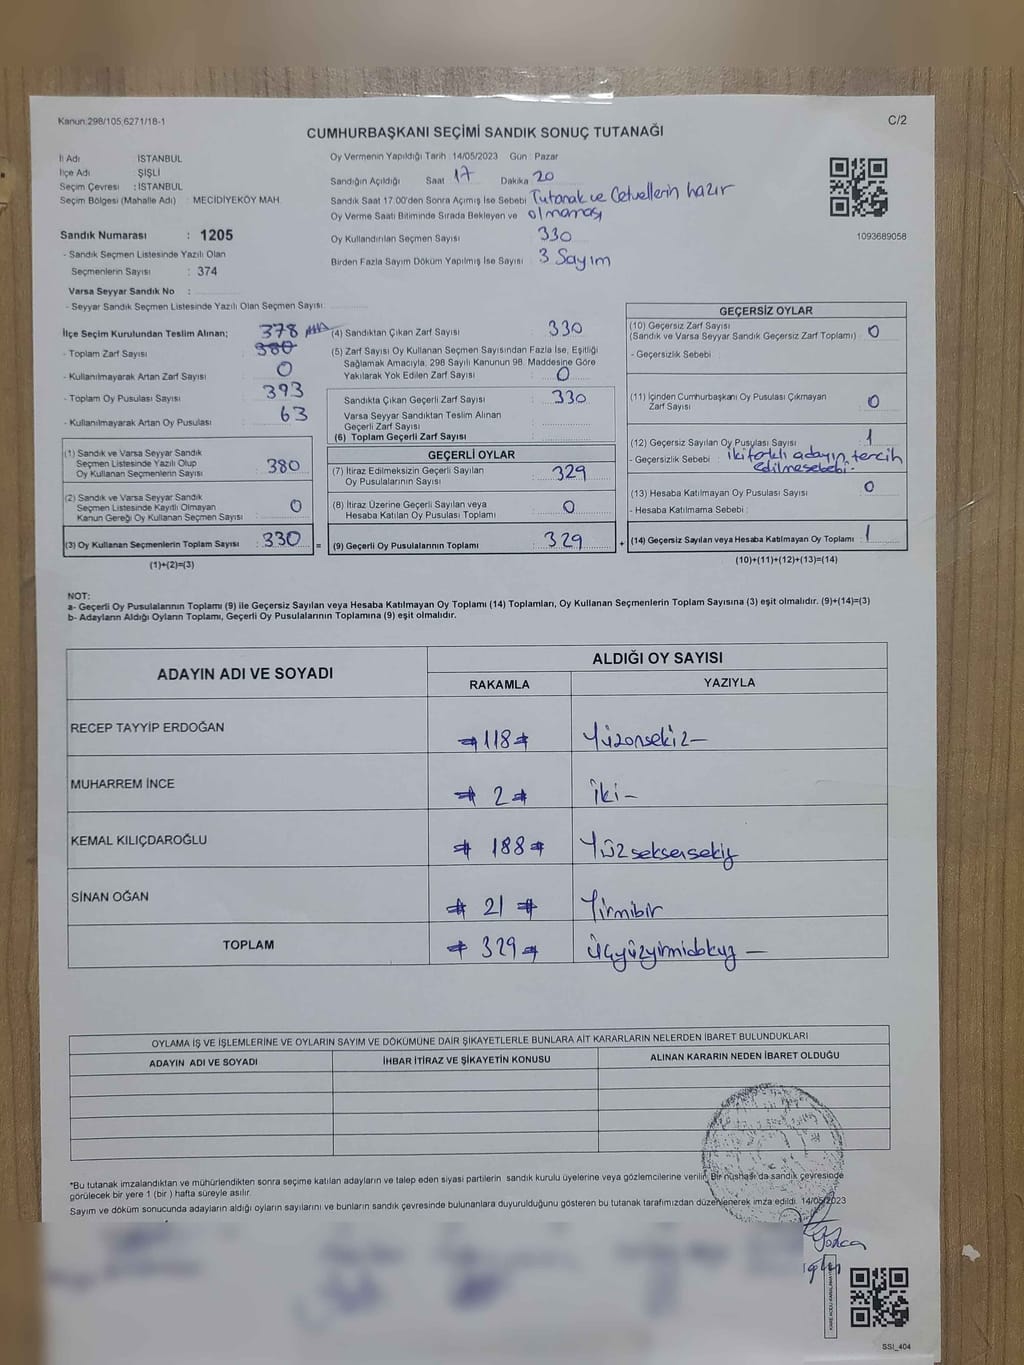 Kanun:298/105,6271/18-1
C/2
CUMHURBAŞKANI SEÇİMİ SANDIK SONUÇ TUTANAĞI
İl Adı İSTANBUL
İlçe Adı ŞİŞLİ
Seçim Çevresi : İSTANBUL
Seçim Bölgesi (Mahalle Adı) : MECİDİYEKÖY MAH.
Oy Vermenin Yapıldığı Tarih : 14/05/2023 Gün : Pazar
Sandığın Açıldığı Saat 17 Dakika 20
Sandık Saat 17.00'den Sonra Açımış İse Sebebi Tutanak ve Cetvellerin hazır
Oy Verme Saati Bitiminde Sırada Bekleyen ve olmaması
Oy Kullandırılan Seçmen Sayısı 330
Birden Fazla Sayım Döküm Yapılmış İse Sayısı : 3 Sayım
1093689058
Sandık Numarası : 1205
- Sandık Seçmen Listesinde Yazılı Olan
Seçmenlerin Sayısı : 374
Varsa Seyyar Sandık No :
- Seyyar Sandık Seçmen Listesinde Yazılı Olan Seçmen Sayısı:
İlçe Seçim Kurulundan Teslim Alınan; 378
- Toplam Zarf Sayısı : 380
- Kullanılmayarak Artan Zarf Sayısı : 0
- Toplam Oy Pusulası Sayısı : 393
- Kullanılmayarak Artan Oy Pusulası : 63
(1) Sandık ve Varsa Seyyar Sandık
Seçmen Listesinde Yazılı Olup
Oy Kullanan Seçmenlerin Sayısı : 380
(2) Sandık ve Varsa Seyyar Sandık
Seçmen Listesinde Kayıtlı Olmayan
Kanun Gereği Oy Kullanan Seçmen Sayısı : 0
(3) Oy Kullanan Seçmenlerin Toplam Sayısı : 330 =
(1)+(2)=(3)
(4) Sandıktan Çıkan Zarf Sayısı : 330
(5) Zarf Sayısı Oy Kullanan Seçmen Sayısından Fazla İse, Eşitliği
Sağlamak Amacıyla, 298 Sayılı Kanunun 98. Maddesine Göre
Yakılarak Yok Edilen Zarf Sayısı : 0
Sandıkta Çıkan Geçerli Zarf Sayısı : 330
Varsa Seyyar Sandıktan Teslim Alınan
Geçerli Zarf Sayısı :
(6) Toplam Geçerli Zarf Sayısı :
GEÇERLİ OYLAR
(7) İtiraz Edilmeksizin Geçerli Sayılan
Oy Pusulalarının Sayısı : 329
(8) İtiraz Üzerine Geçerli Sayılan veya
Hesaba Katılan Oy Pusulası Toplamı : 0
(9) Geçerli Oy Pusulalarının Toplamı : 329 +
GEÇERSİZ OYLAR
(10) Geçersiz Zarf Sayısı
(Sandık ve Varsa Seyyar Sandık Geçersiz Zarf Toplamı) : 0
- Geçersizlik Sebebi :
(11) İçinden Cumhurbaşkanı Oy Pusulası Çıkmayan
Zarf Sayısı : 0
(12) Geçersiz Sayılan Oy Pusulası Sayısı : 1
- Geçersizlik Sebebi : iki farklı adayın tercih
edilme sebebi.
(13) Hesaba Katılmayan Oy Pusulası Sayısı : 0
- Hesaba Katılmama Sebebi :
(14) Geçersiz Sayılan veya Hesaba Katılmayan Oy Toplamı : 1
(10)+(11)+(12)+(13)=(14)
NOT:
a- Geçerli Oy Pusulalarının Toplamı (9) ile Geçersiz Sayılan veya Hesaba Katılmayan Oy Toplamı (14) Toplamları, Oy Kullanan Seçmenlerin Toplam Sayısına (3) eşit olmalıdır. (9)+(14)=(3)
b- Adayların Aldığı Oyların Toplamı, Geçerli Oy Pusulalarının Toplamına (9) eşit olmalıdır.
ADAYIN ADI VE SOYADI
ALDIĞI OY SAYISI
RAKAMLA YAZIYLA
RECEP TAYYİP ERDOĞAN #118# Yüzonsekiz-
MUHARREM İNCE # 2 # iki-
KEMAL KILIÇDAROĞLU # 188 # Yüzseksensekiz
SİNAN OĞAN # 21 # Yirmibir
TOPLAM # 329 # Üçyüzyirmidokuz -
OYLAMA İŞ VE İŞLEMLERİNE VE OYLARIN SAYIM VE DÖKÜMÜNE DAİR ŞİKAYETLERLE BUNLARA AİT KARARLARIN NELERDEN İBARET BULUNDUKLARI
ADAYIN ADI VE SOYADI İHBAR İTİRAZ VE ŞİKAYETİN KONUSU ALINAN KARARIN NEDEN İBARET OLDUĞU
*Bu tutanak imzalandıktan ve mühürlendikten sonra seçime katılan adayların ve talep eden siyasi partilerin sandık kurulu üyelerine veya gözlemcilerine verilir. Bir nüshası da sandık çevresinde
görülecek bir yere 1 (bir ) hafta süreyle asılır.
Sayım ve döküm sonucunda adayların aldığı oyların sayılarını ve bunların sandık çevresinde bulunanlara duyurulduğunu gösteren bu tutanak tarafımızdan düzenlenerek imza edildi. 14/05/2023
SSI_404